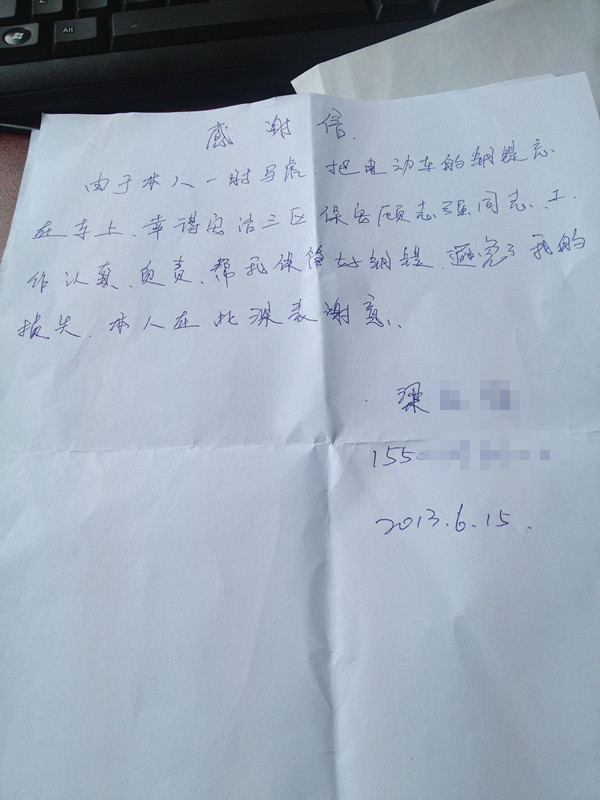 Alt
感谢信.
由于本人一时马虎.把电动车的钢匙忘
在车上.幸得宏洁三区保安顾志强同志.工
作认真.负责.帮我保管好钢匙.避免了我的
损失.本人在此深表谢意.
梁
155
2013.6.15.